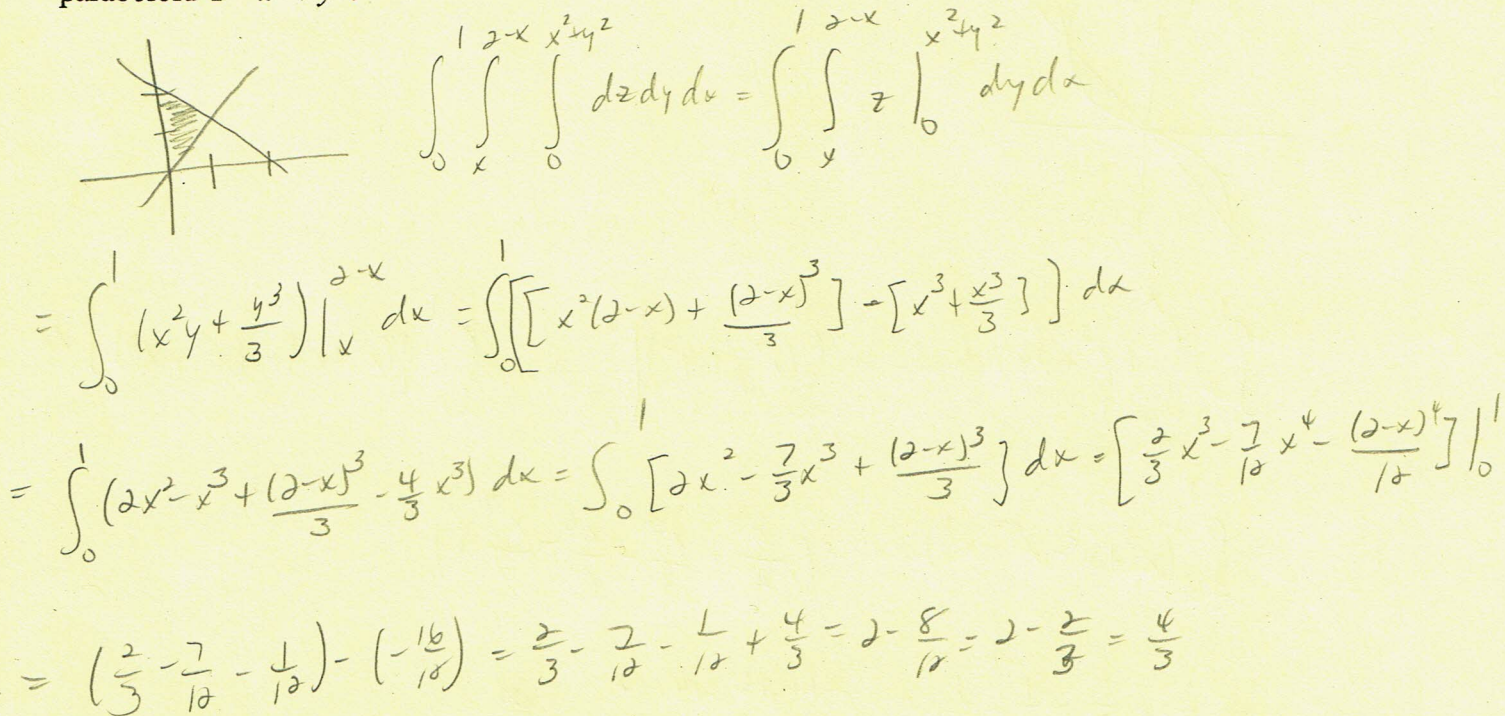 ∫₀¹ ∫ₓ²⁻ˣ ∫₀^(x²+y²) dz dy dx = ∫₀¹ ∫ₓ²⁻ˣ z |₀^(x²+y²) dy dx
= ∫₀¹ (x²y + y³/3) |ₓ²⁻ˣ dx = ∫₀¹ [[x²(2-x) + (2-x)³/3] - [x³ + x³/3]] dx
= ∫₀¹ (2x² - x³ + (2-x)³/3 - 4/3 x³) dx = ∫₀¹ [2x² - 7/3 x³ + (2-x)³/3] dx = [2/3 x³ - 7/12 x⁴ - (2-x)⁴/12] |₀¹
= (2/3 - 7/12 - 1/12) - (-16/12) = 2/3 - 7/12 - 1/12 + 4/3 = 2 - 8/12 = 2 - 2/3 = 4/3